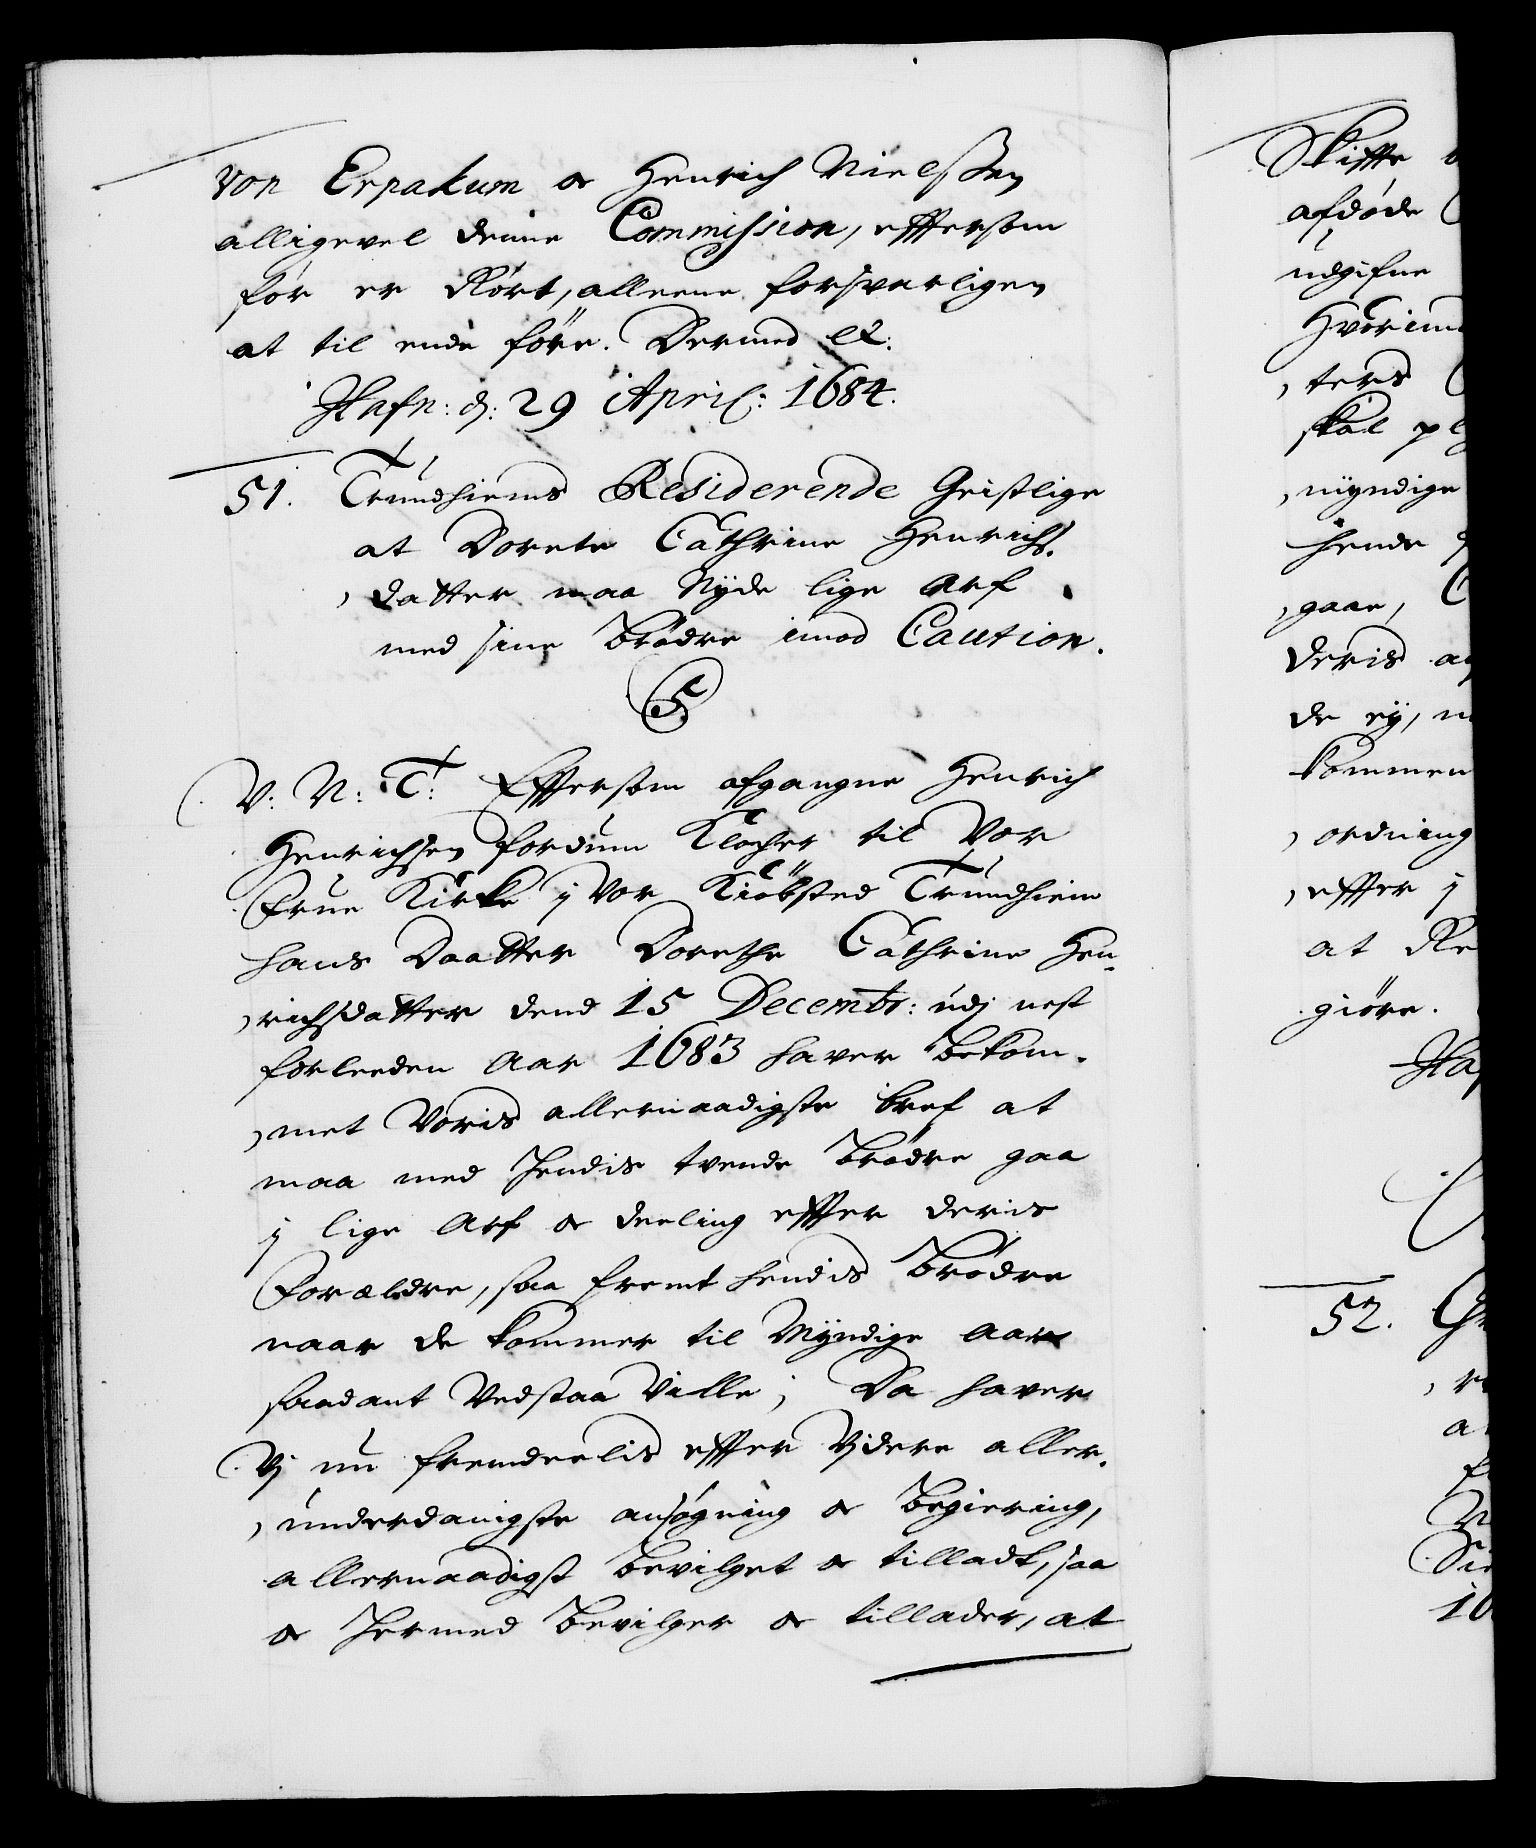 von Erpakum oc Henrich Nielssen
alligevel denne Commission, efftersom
för er Rört, alleene forsvarligen
at til ende före. Dermed etc:
Hafn: d: 29 April: 1684.
51. Trundhiems Residerende Geistlige
at Dorete Cathrine Henrichs
datter maa Nyde lige Arf
med sine brödre imod Caution.
C5
V: N: T: Efftersom afgangne Henrich
Henrichsen fordum Klocher til Vor
Frue Kirke j Vor Kiöbsted Trundhiem
hans Daatter Dorethe Cathrine Hen-
richsdatter dend 15 Decembr: udj nest
forleeden Aar 1683 haver bekom-
met Voris allernaadigste bref at
maa med hendis tvende brödre gaa
j lige Arf oc deeling effter deris
Forældre, saa fremt hendis brödre
naar de kommer til Myndige Aar
saadant Vedstaa Ville; Da haver
Vj nu fremdeelis effter Vjdere aller-
underdanigste ansögning oc begiering,
allernaadigst bevilget oc tilladt, saa
oc hermed bevilger oc tillader, at
Skiffte
afdöde
udgifne
Hvorimod
ters
skal
myndige
hende
gaar,
deris
de ej,
kommen
ordning
effter j
at Re
giöre.
Haf
52.